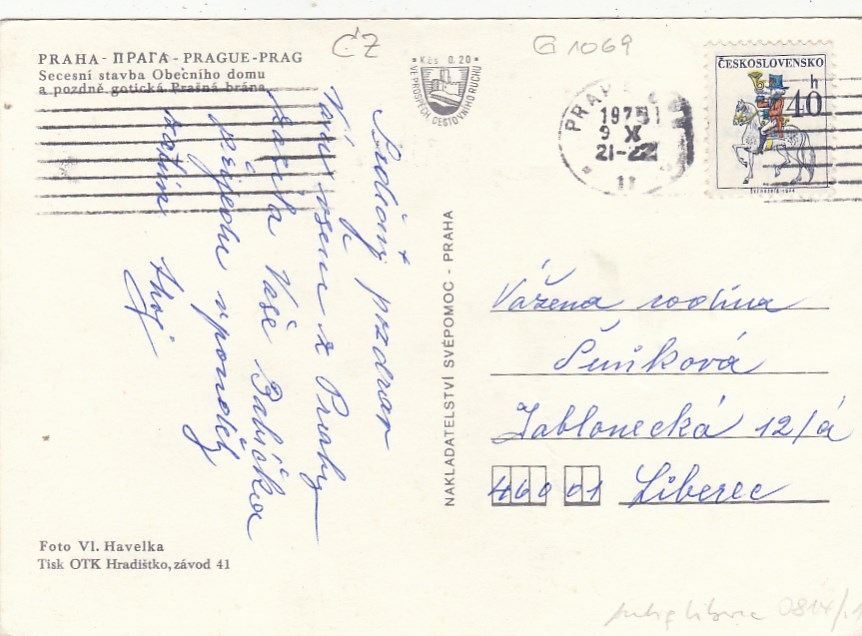 PRAHA - ПРАГА - PRAGUE - PRAG
Secesní stavba Obecního domu
a pozdně gotická Prašná brána
ČZ
G 1069
Kčs 0.20
VE PROSPĚCH CESTOVNÍHO RUCHU
PRAHA
1975
9 X
21-22
11
ČESKOSLOVENSKO
40 h
Srdečný pozdrav
Vám všem z Prahy
Vaše Babička
Přijedu v pondělí
Ahoj
NAKLADATELSTVÍ SVÉPOMOC - PRAHA
Vážená rodina
Šuňková
Jablonecká 12/á
460 01 Liberec
Foto Vl. Havelka
Tisk OTK Hradištko, závod 41
0814/